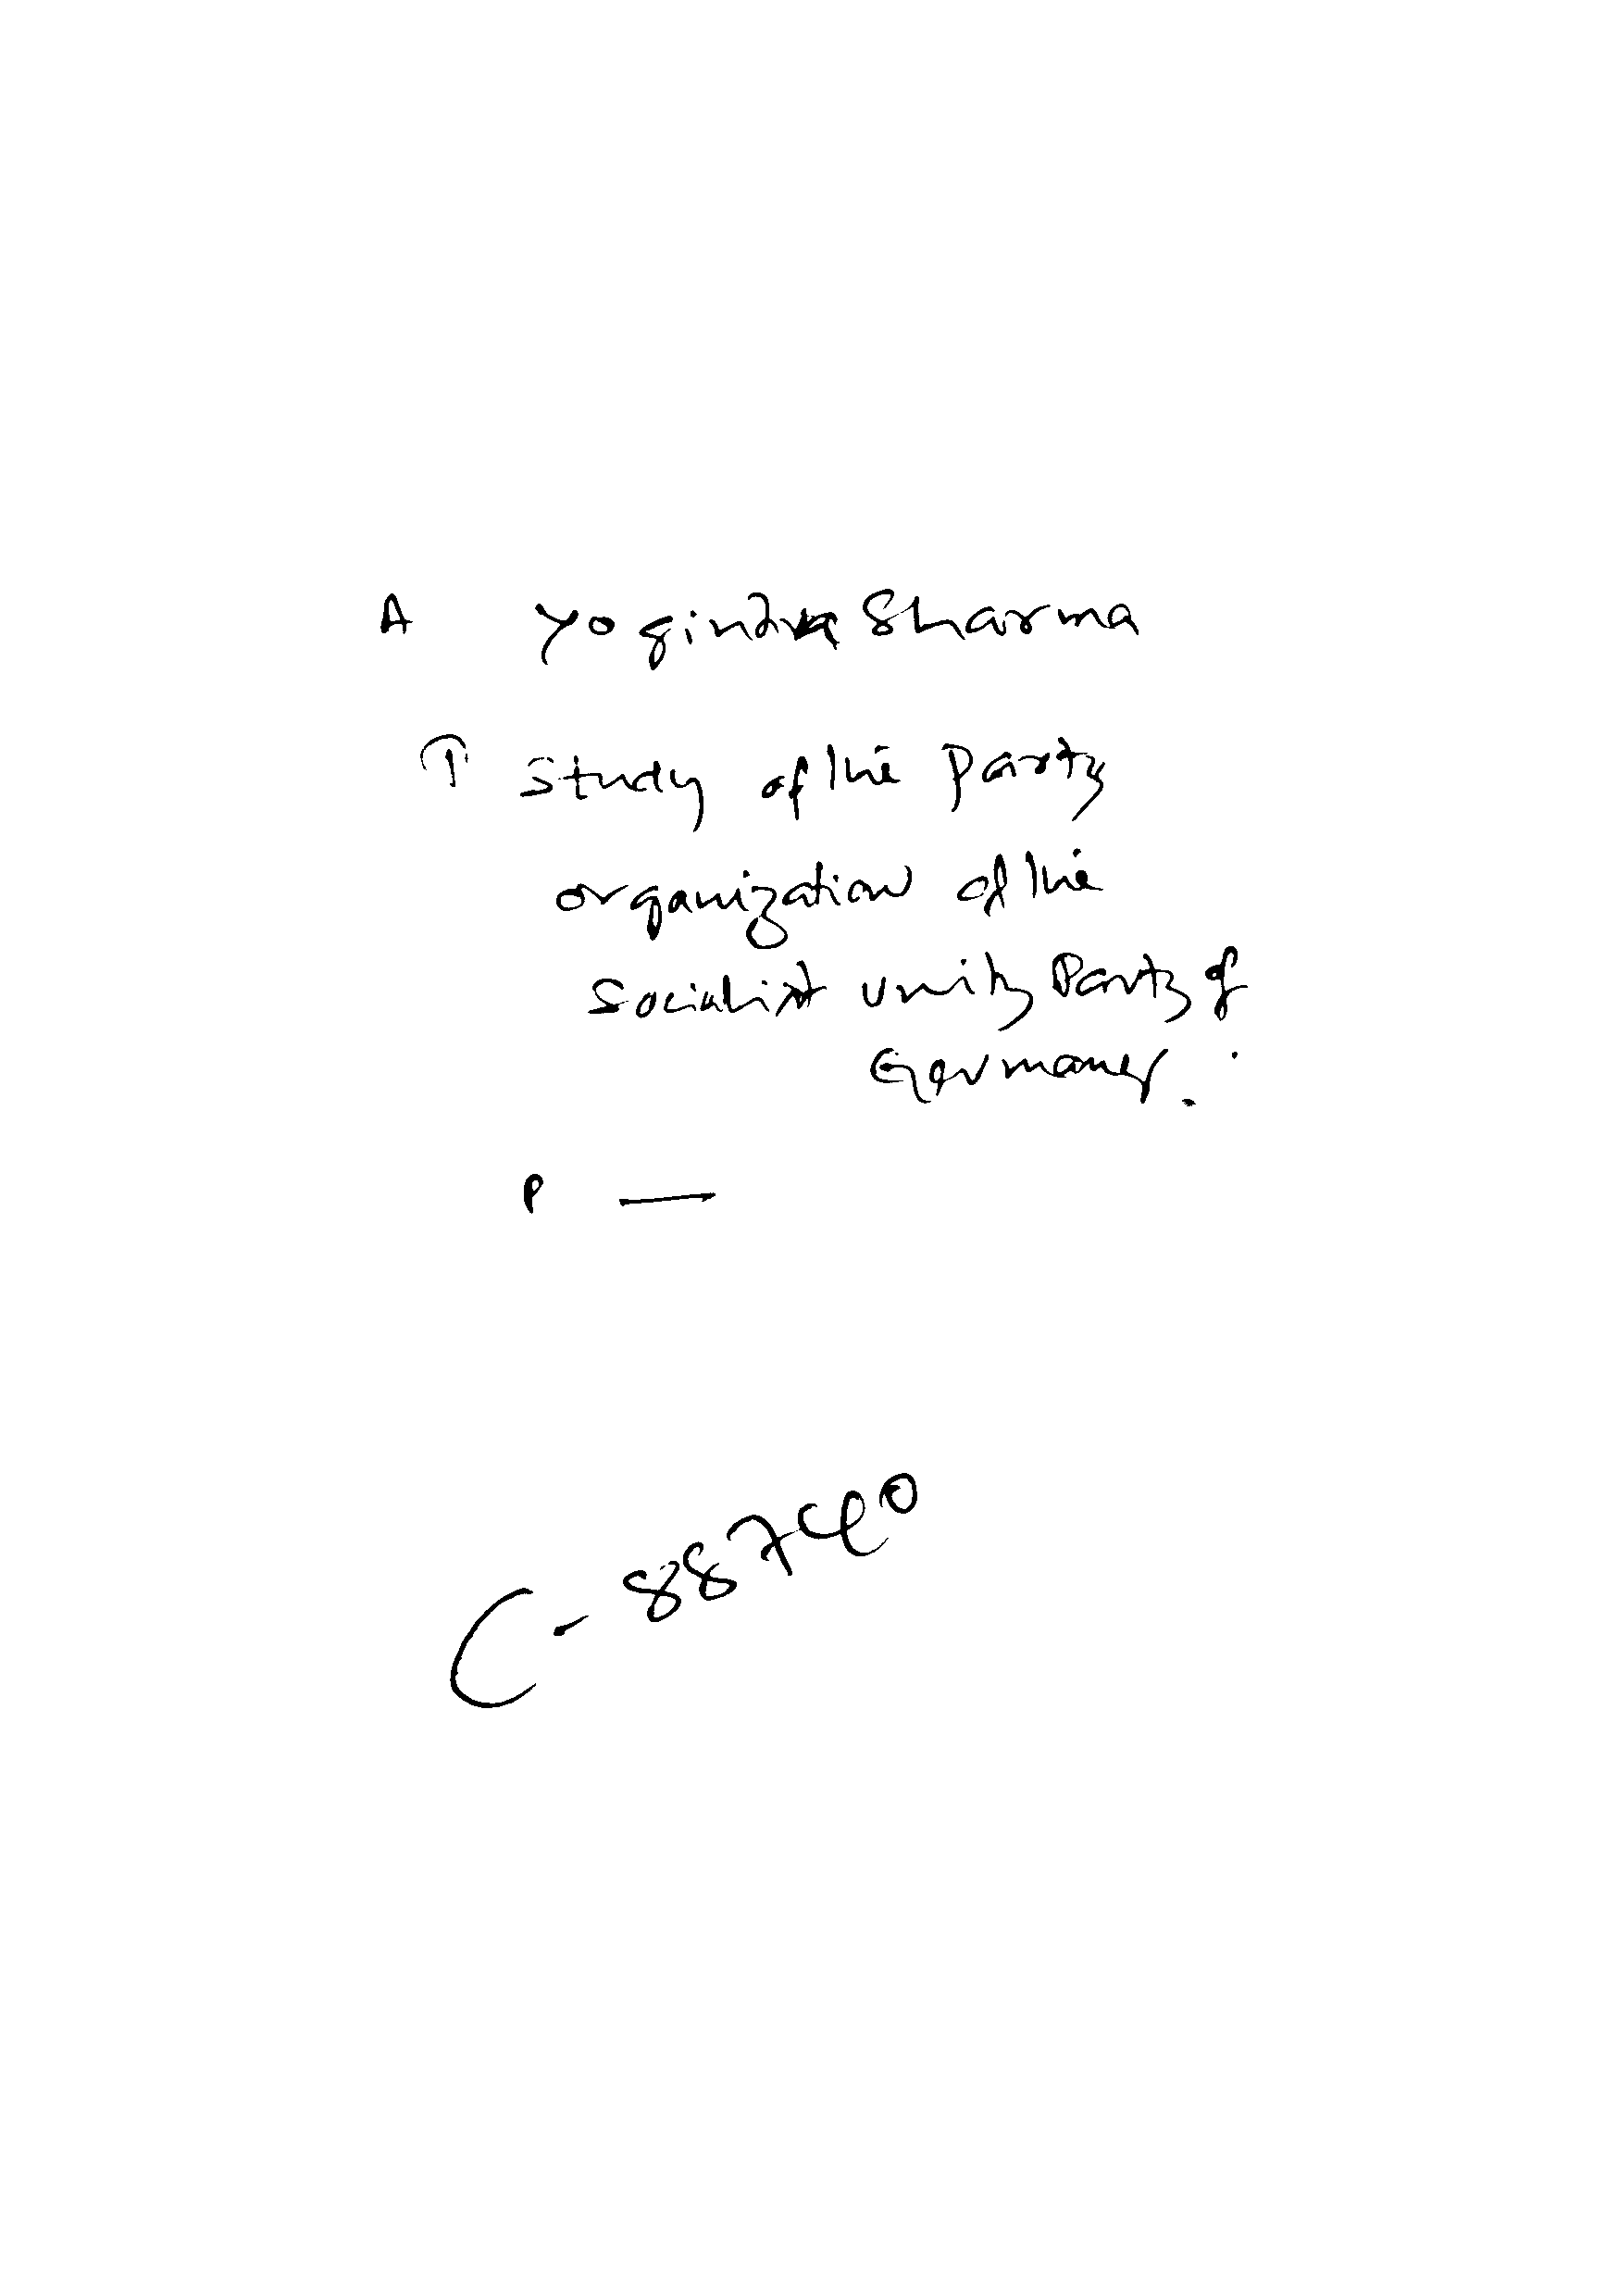 A Yogindra Sharma
T Study of the Party
organization of the
Socialist Unity Party of
Germany.
P —
C-88740